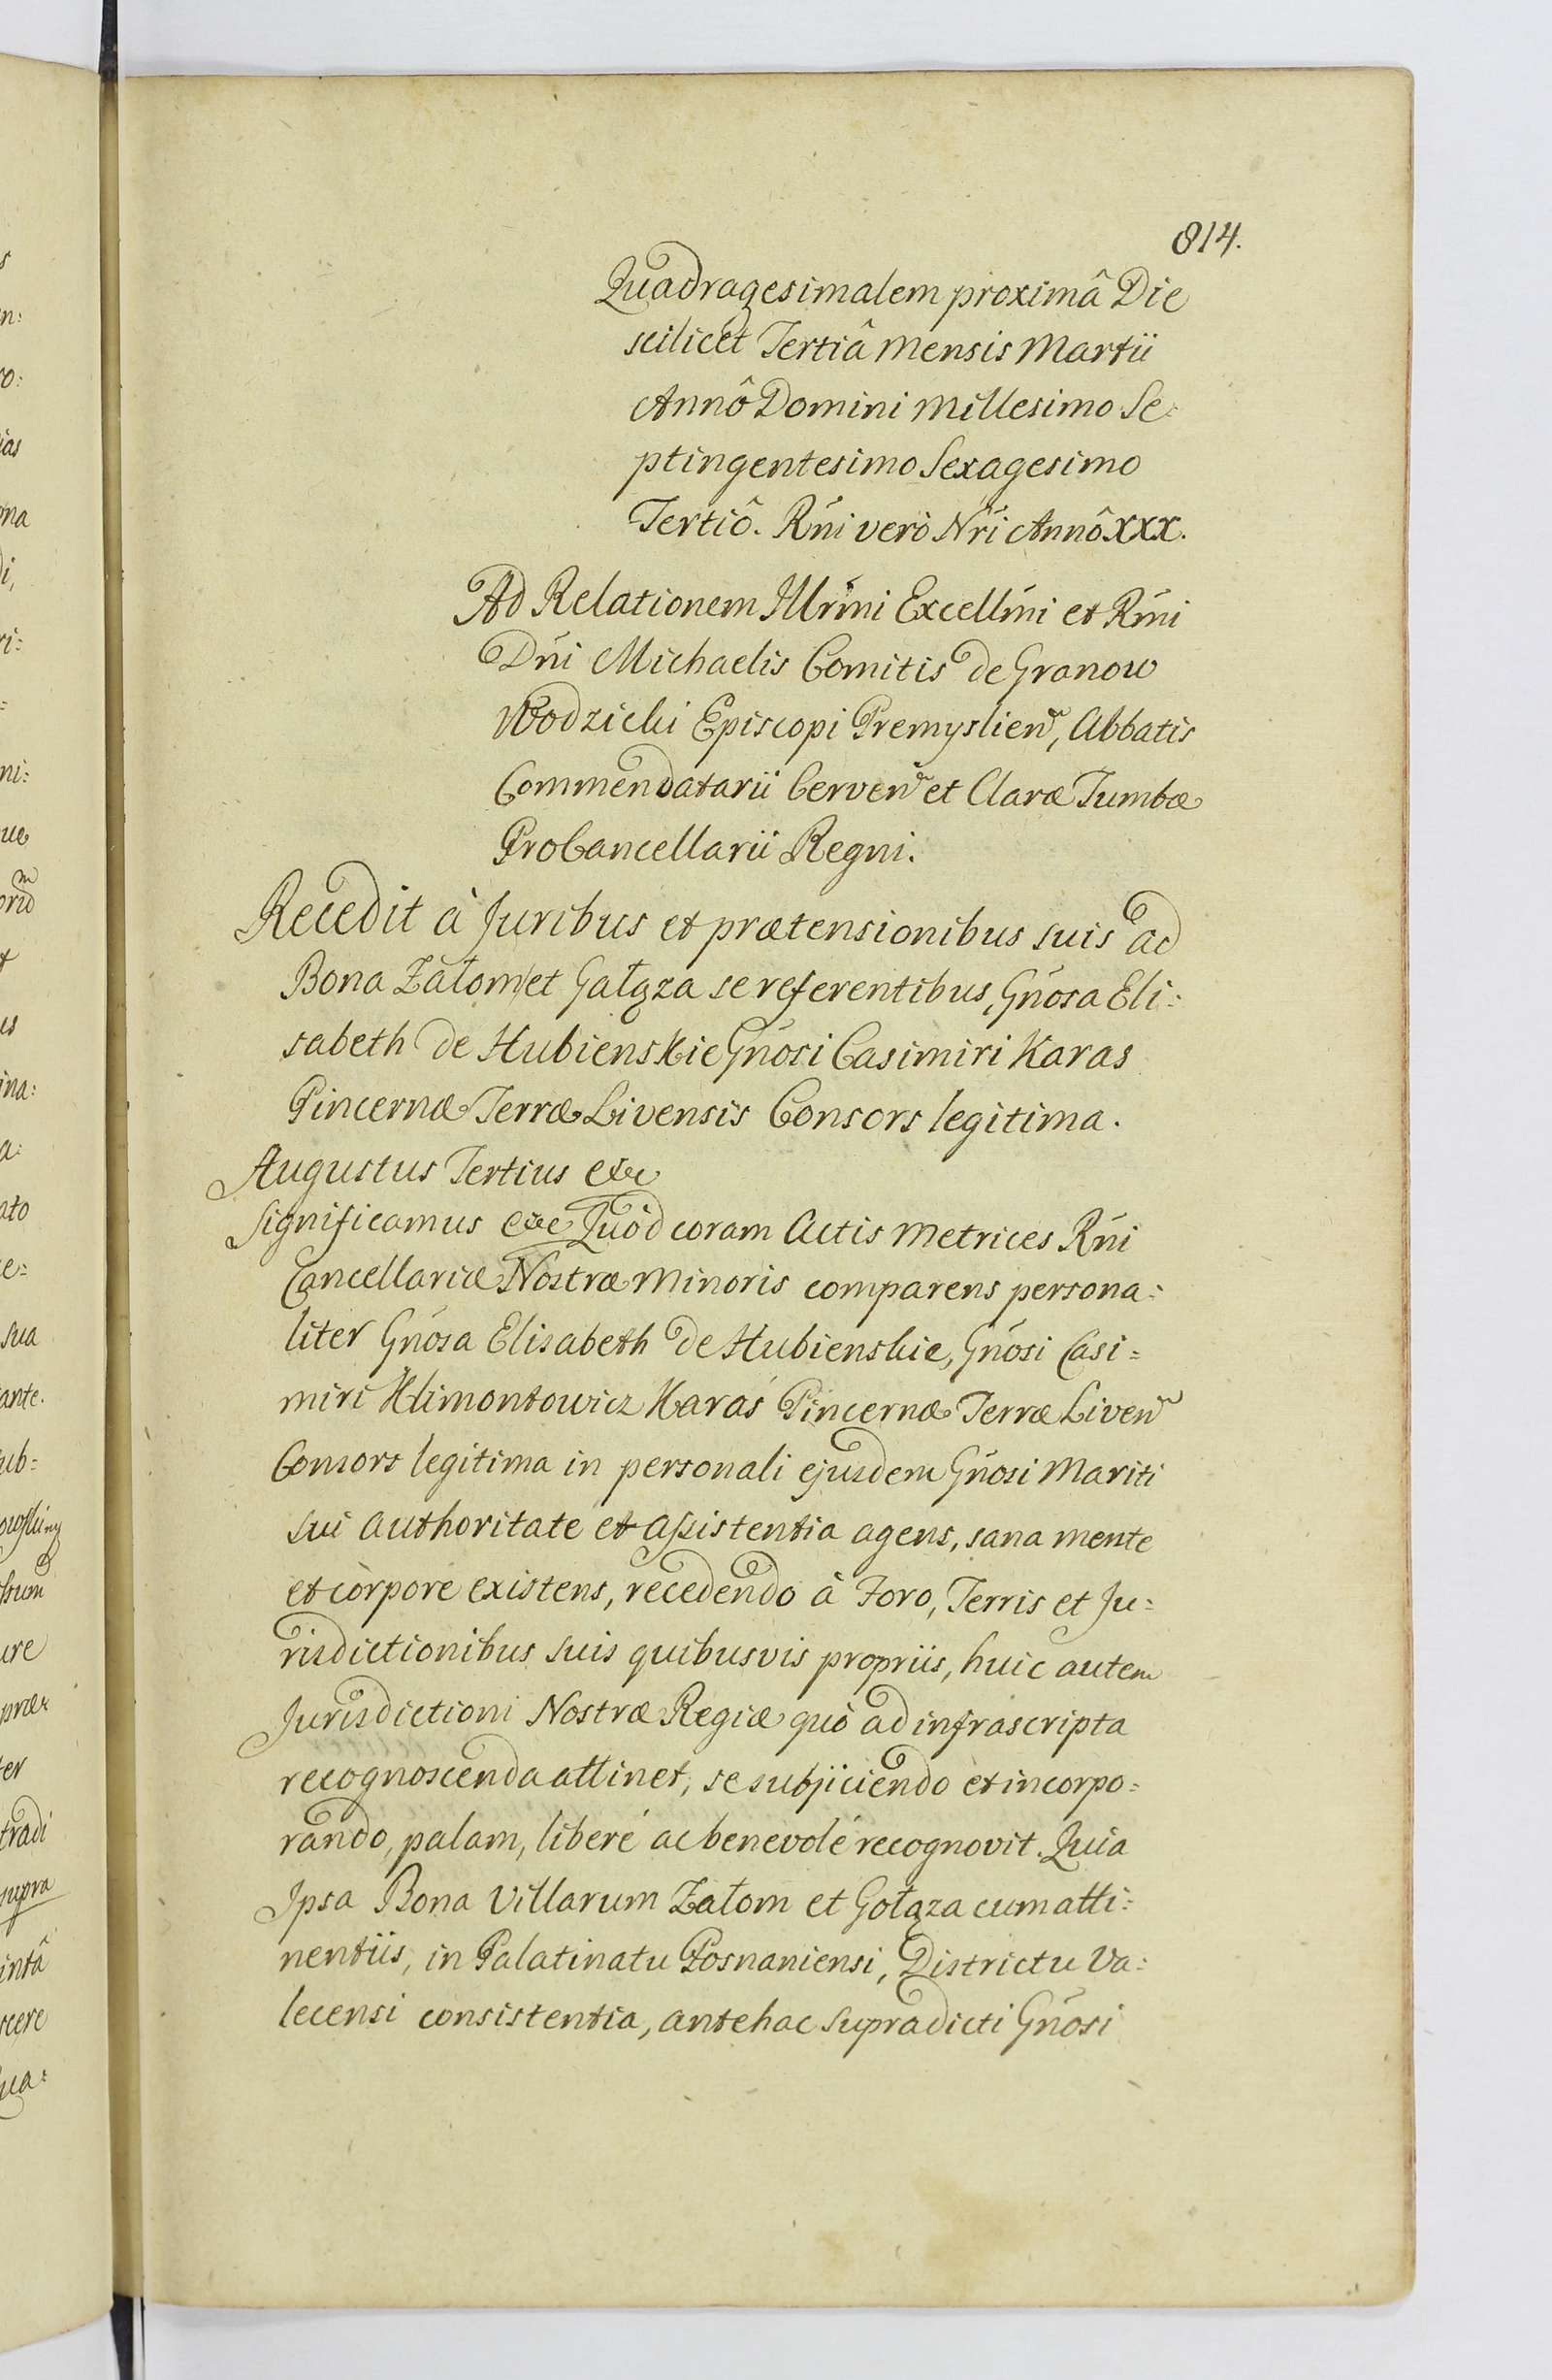 814.
Quadragesimalem proximâ Die
scilicet Tertiâ Mensis Martii
Annô Domini Millesimo Se=
ptingentesimo Sexagesimo
Tertiô. Rńi verò Nrí Annô XXX.
Ad Relationem Illrmi Excellmi et Rmi
Dńi Michaelis Comitis de Granow
Wodzicki Episcopi Premyslien, Abbatis
Commendatarii Cerven et Claræ Tumbæ
ProCancellarii Regni.
Recedit à Juribus et prætensionibus suis ad
Bona Załom et Gałąza se referentibus, Gńosa Eli=
sabeth de Hubienskie Gńosi Casimiri Karas
Pincernæ Terræ Livensis Consors legitima.
Augustus Tertius etc
Significamus etc Quòd coram Actis Metrices Rńi
Cancellariæ Nostræ Minoris comparens persona=
liter Gńosa Elisabeth de Hubienskie, Gńosi Casi=
miri Klimontowicz Karaś Pincernæ Terræ Liven
Consors legitima in personali ejusdem Gńosi Mariti
sui authoritate et assistentia agens, sana mente
et corpore existens, recedendo à Foro, Terris et Ju=
risdictionibus suis quibusvis propriis, huic autem
Jurisdictioni Nostræ Regiæ quò ad infrascripta
recognoscenda attinet, se subjiciendo et incorpo=
rando, palam, liberé ac benevolé recognovit. Quia
Ipsa Bona Villarum Załom et Gołąza cum atti=
nentiis, in Palatinatu Posnaniensi, Districtu Va=
lecensi consistentia, antehac supradicti Gńosi